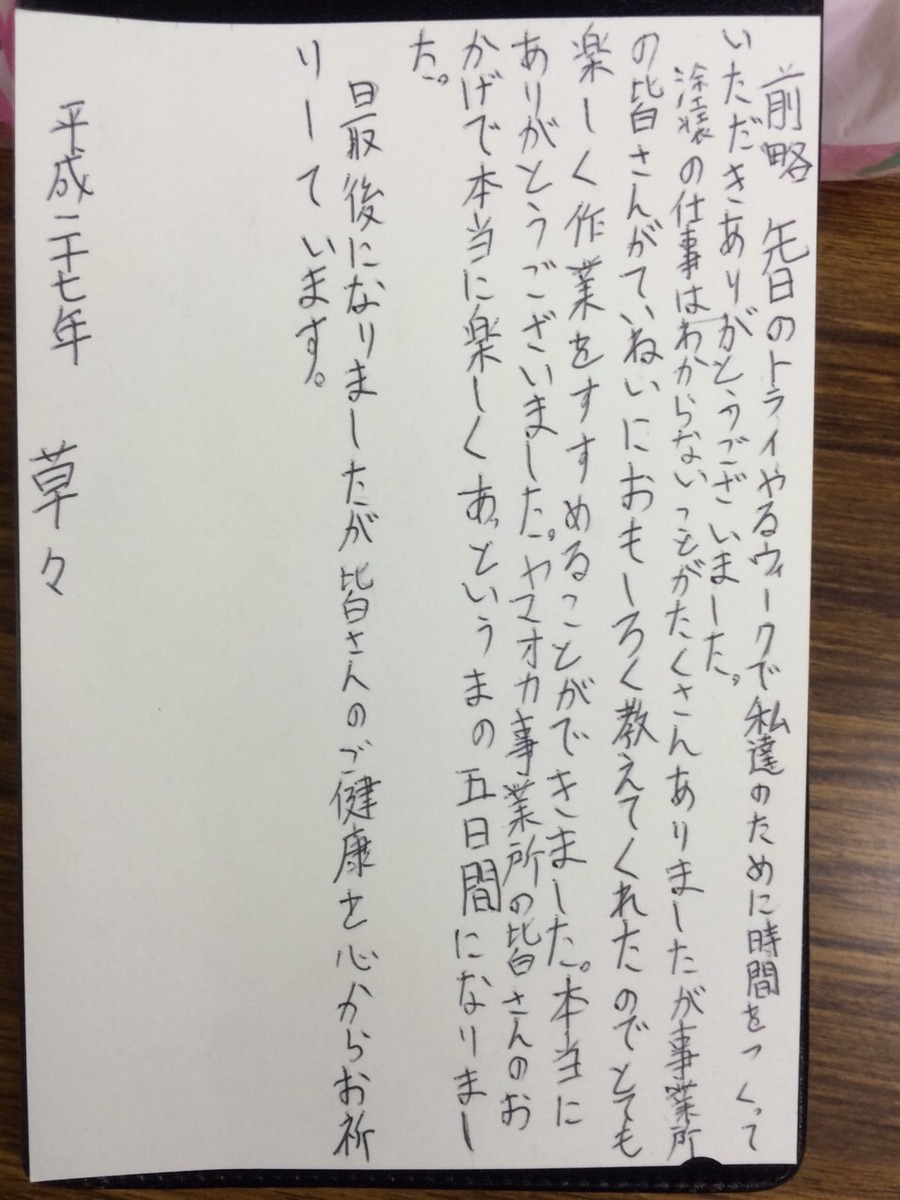 前略　先日のトライやるウィークで私達のために時間をつくって
いただきありがとうございました。
塗装の仕事はわからないことがたくさんありましたが事業所
の皆さんがていねいにおもしろく教えてくれたのでとても
楽しく作業をすすめることができました。本当に
ありがとうございました。ヤマオカ事業所の皆さんのお
かげで本当に楽しくあっというまの五日間になりまし
た。
最後になりましたが皆さんのご健康を心からお祈
りしています。
平成二十七年　草々